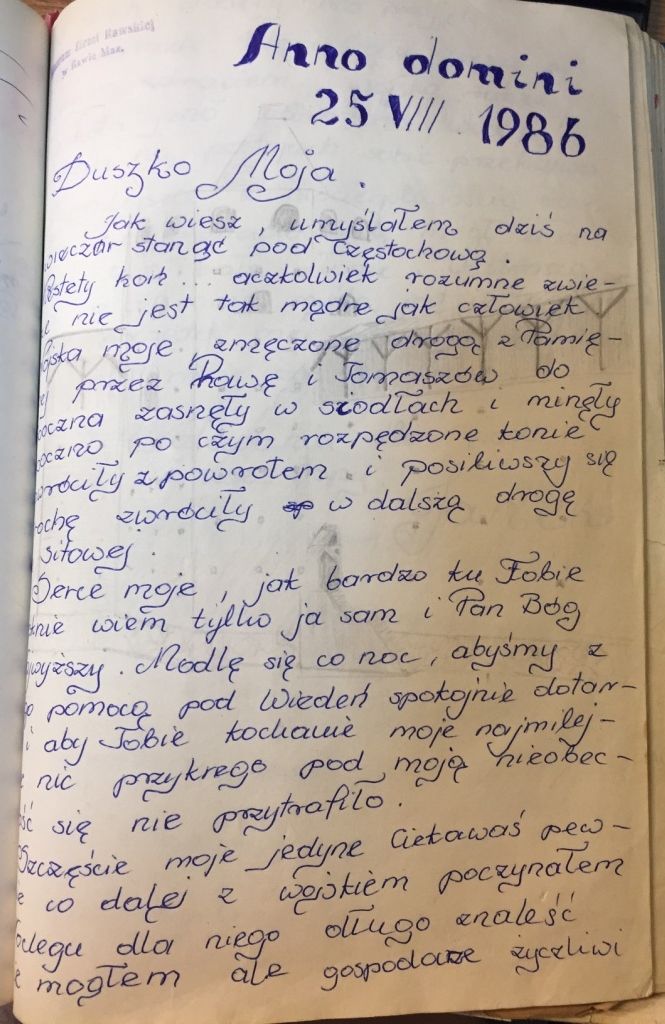 Ziemi Rawskiej
w Rawie Maz.
Anno domini
25 VIII 1986
Duszko Moja.
Jak wiesz, umyślałem dziś na
wieczór stanąć pod Częstochową.
Niestety koń... aczkolwiek rozumne zwie-
i nie jest tak mądre jak człowiek
Wojska moje, zmęczone drogą z Pamię-
ej przez Rawę i Tomaszów do
oczna zasnęły w siodłach i minęły
oczno po czym rozpędzone konie
wróciły z powrotem i posiliwszy się
trochę zwróciły w dalszą drogę
siłowej.
Serce moje, jak bardzo ku Tobie
knie wiem tylko ja sam i Pan Bóg
Najwyższy. Modlę się co noc, abyśmy z
go pomocą pod Wiedeń spokojnie dotar-
i aby Tobie kochanie moje najmilej-
e nic przykrego pod moją nieobec-
ość się nie przytrafiło.
Szczęście moje jedyne Ciekawaś pew-
ie co dalej z wojskiem poczynałem
oclegu dla niego długo znaleść
e mogłem ale gospodarze życzliwi